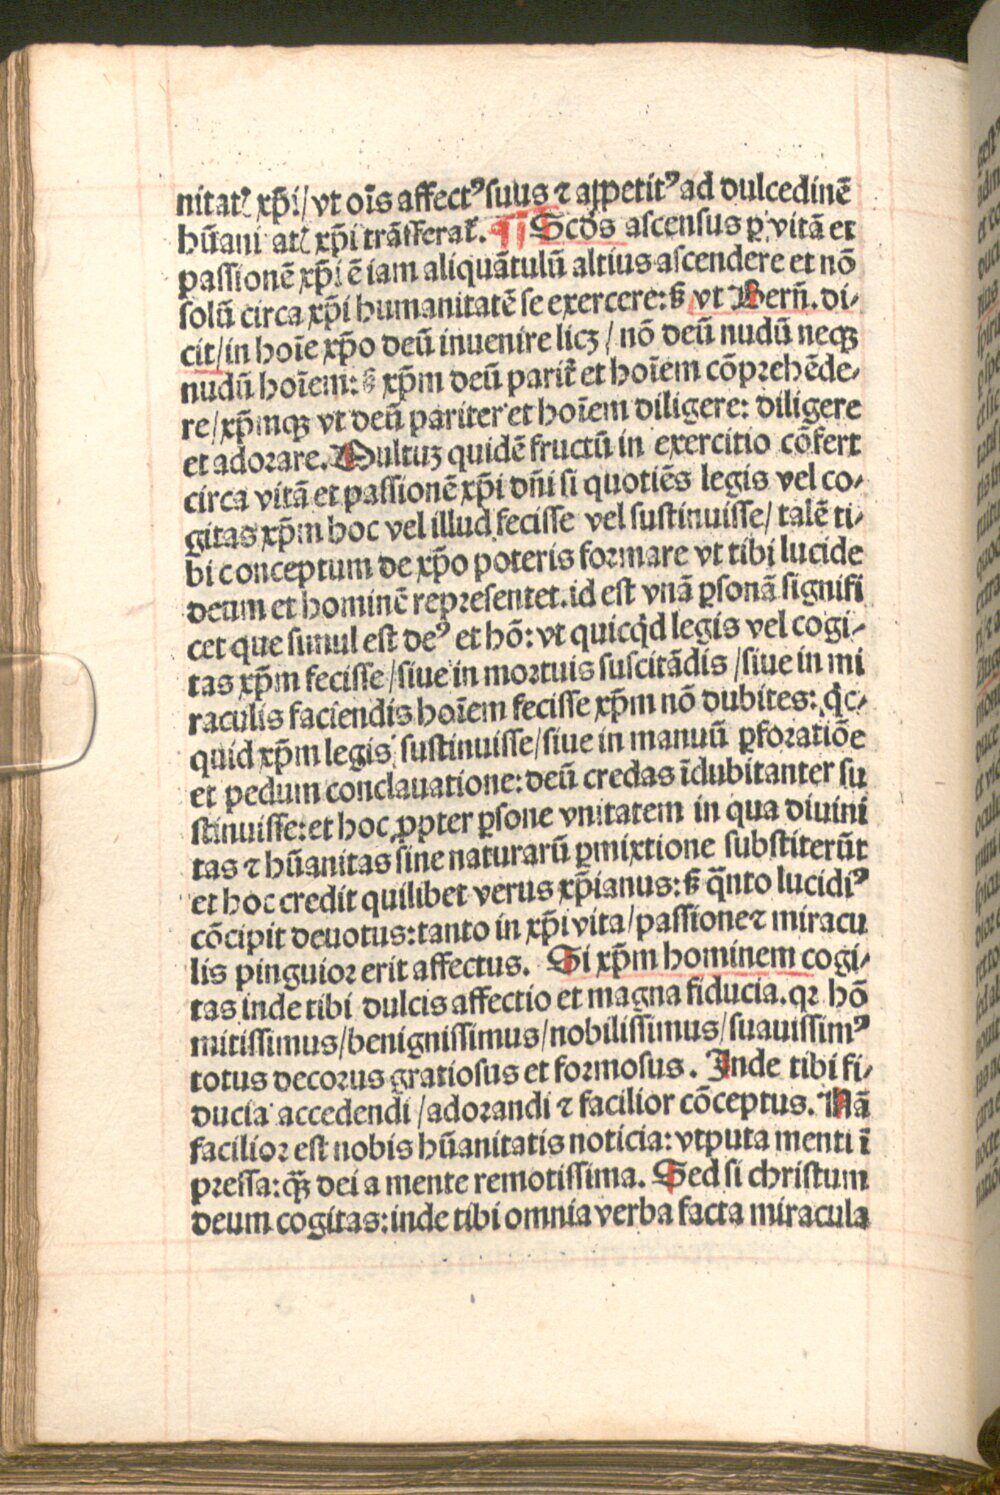 nitatꝭ xp̄i/vt oı̄s affectꝰ suus ⁊ appetitꝰ ad dulcedinē
hūani atꝭ xp̄i trāsferat̄. ¶ Scd̄s ascensus ꝑ vitā et
passionē xp̄i ē iam aliquātulū altius ascendere et nō
solū circa xp̄i humanitatē se exercere: ß vt Bern̄. di-
cit/in hoı̄e xp̄o deū inuenire licꝫ / nō deū nudū neqꝫ
nudū hoı̄em: ß xp̄m deū parit̄ et hoı̄em cōprehēde-
re/xp̄mqꝫ vt deū pariter et hoı̄em diligere: diligere
et adorare. Multuꝫ quidē fructū in exercitio cōfert
circa vitā et passionē xp̄i dn̄i si quotiēs legis vel co-
gitas xp̄m hoc vel illud fecisse vel sustinuisse/ talē ti-
bi conceptum de xp̄o poteris formare vt tibi lucide
deum et hominē representet. id est vnā ꝑsonā signifi
cet que simul est deꝰ et hō: vt quicq̇d legis vel cogi-
tas xp̄m fecisse/siue in mortuis suscitādis /siue in mi
raculis faciendis hoı̄em fecisse xp̄m nō dubites: q̇c-
quid xp̄m legis sustinuisse/siue in manuū ꝑforatiōe
et pedum conclauatione: deū credas īdubitanter su
stinuisse: et hoc ꝓpter ꝑsone vnitatem in qua diuini
tas ⁊ hūanitas sine naturarū ꝑmixtione substiterūt
et hoc credit quilibet verus xp̄ianus: ß q̄nto lucidiꝰ
cōcipit deuotus: tanto in xp̄i vita/passione ⁊ miracu
lis pinguior erit affectus. Si xp̄m hominem cogi-
tas inde tibi dulcis affectio et magna fiducia. qꝛ hō
mitissimus/benignissimus/nobilissimus/suauissimꝰ
totus decorus gratiosus et formosus. Inde tibi fi-
ducia accedendi /adorandi ⁊ facilior cōceptus. Nā
facilior est nobis hūanitatis noticia: vtputa menti ī
pressa: qꝫ̄ dei a mente remotissima. Sed si christum
deum cogitas: inde tibi omnia verba facta miracula